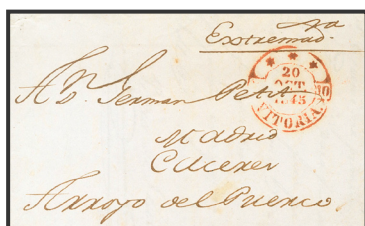 Extremad.ra
20
OCT
1845
VITORIA.
A D.n German Petit
Madrid
Caceres
Arroyo del Puerco.